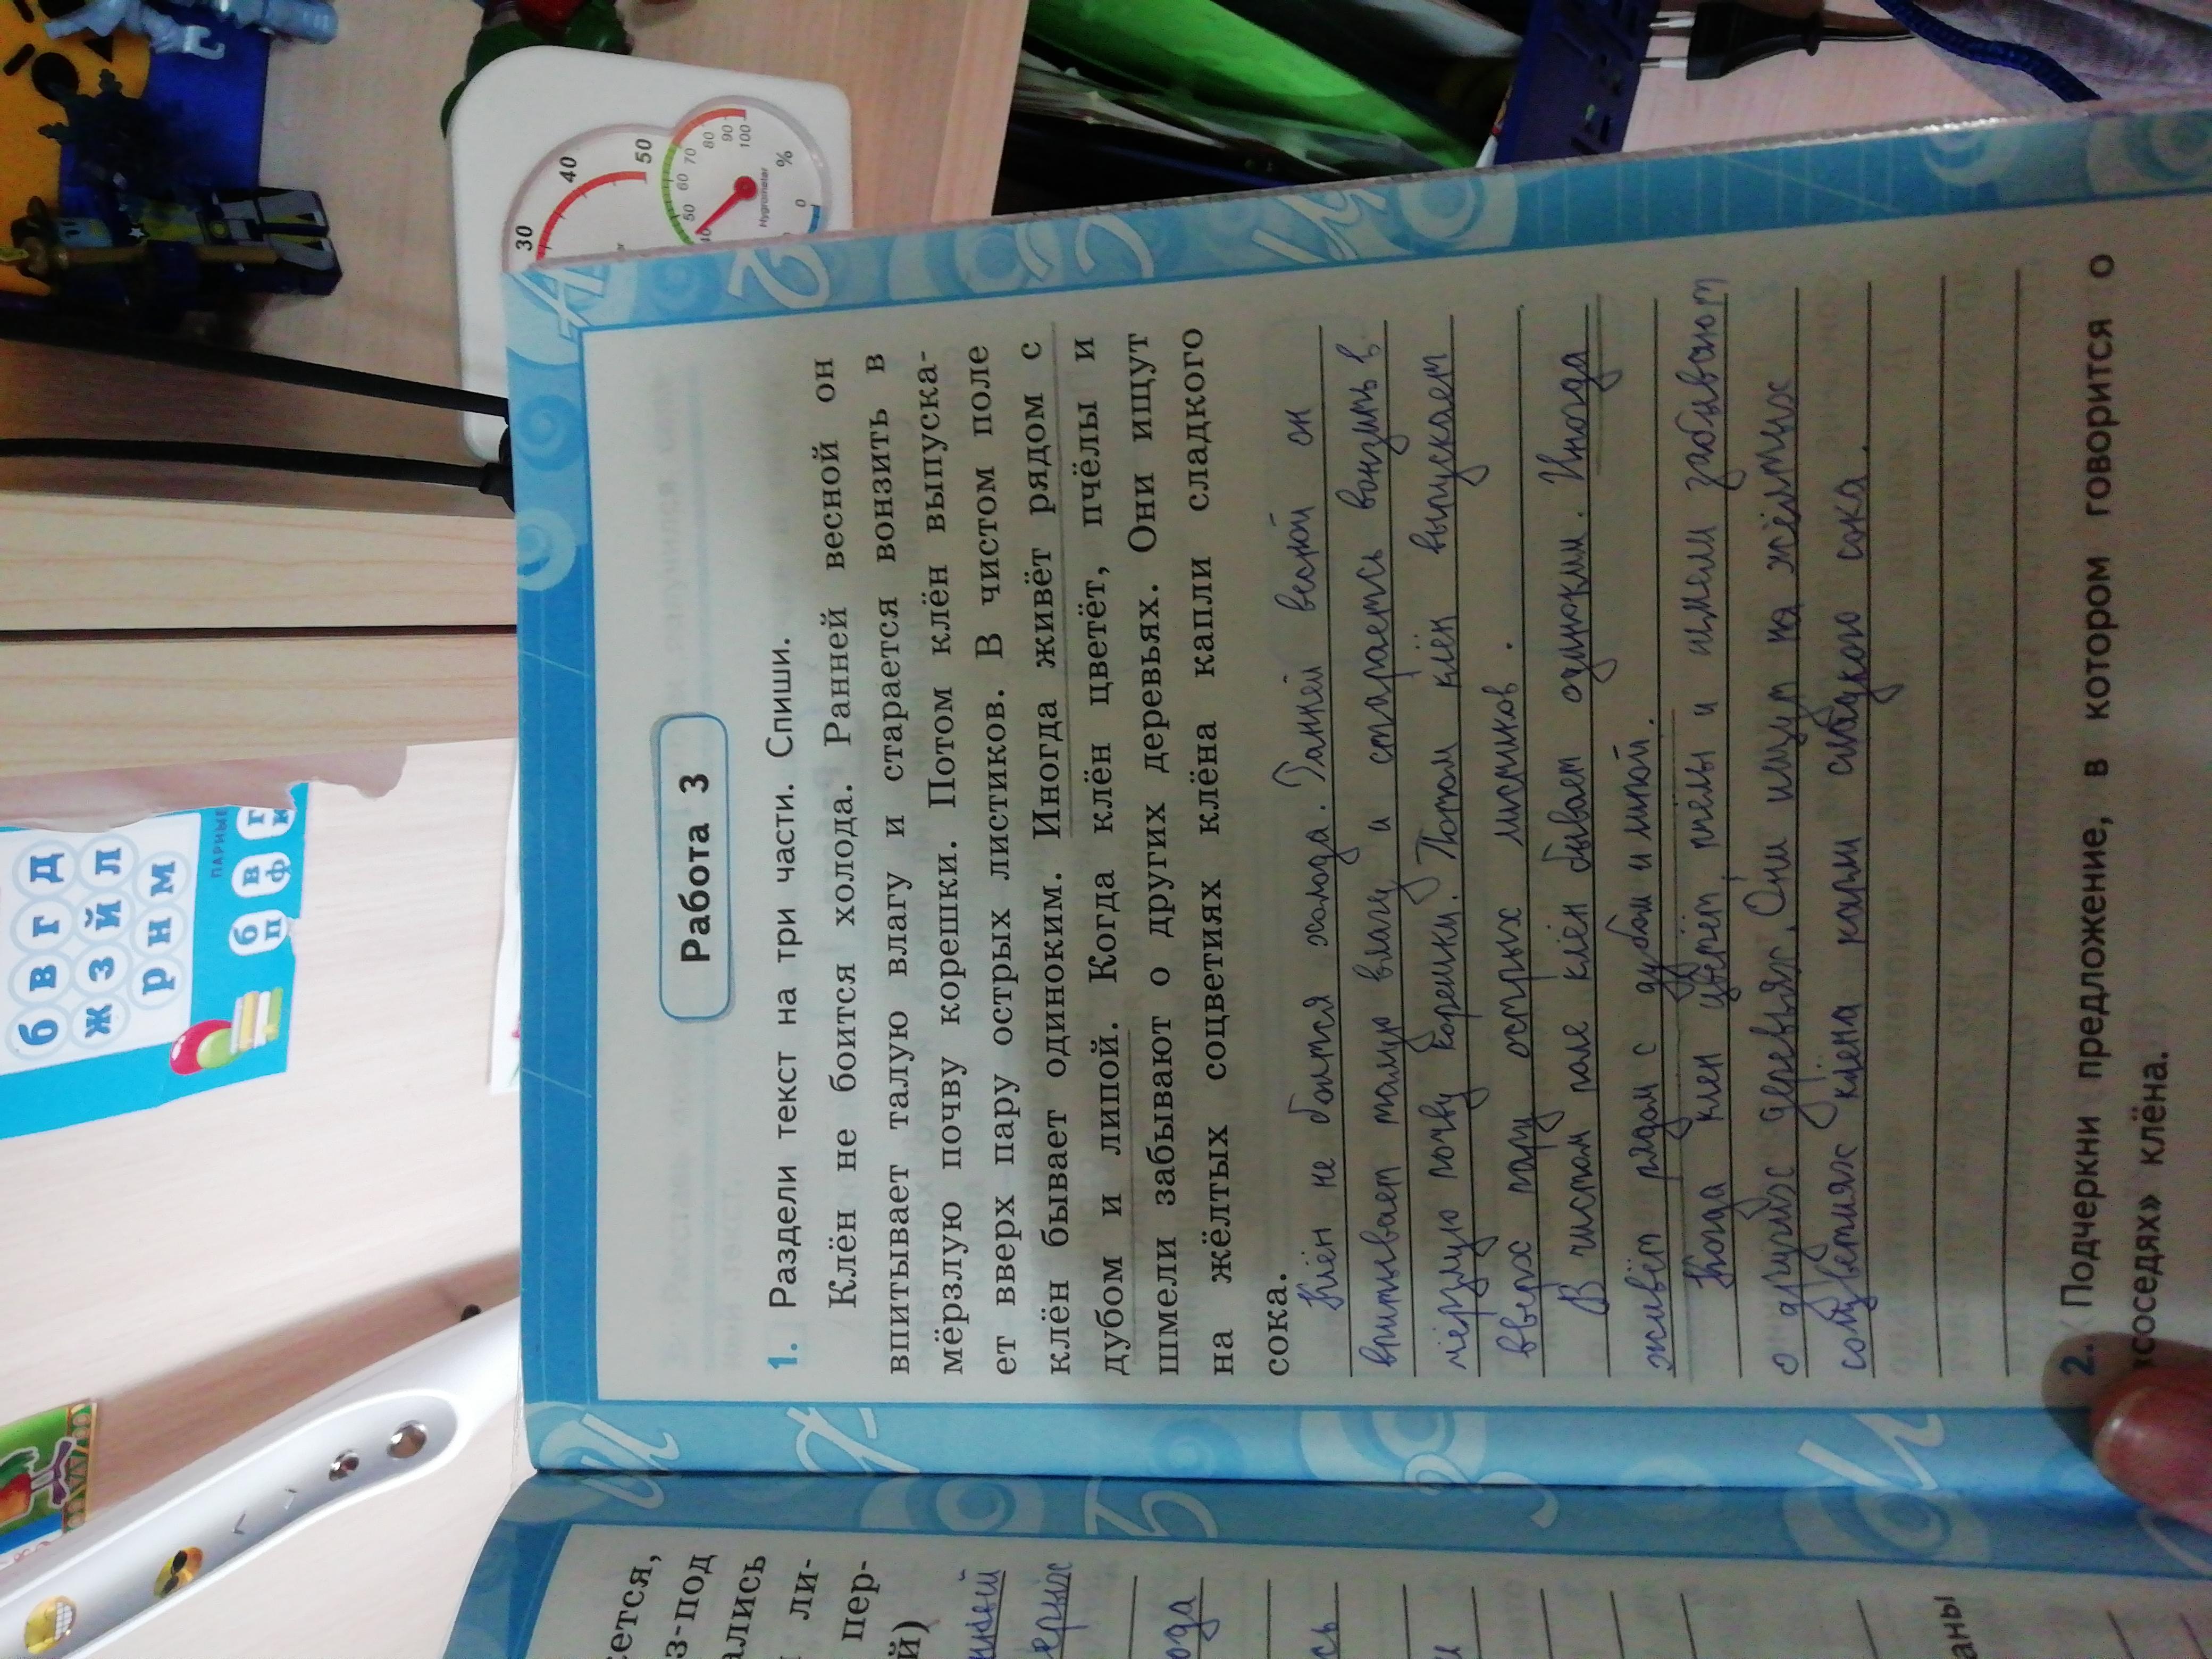 Работа 3
1. Раздели текст на три части. Спиши.
Клён не боится холода. Ранней весной он
впитывает талую влагу и старается вонзить в
мёрзлую почву корешки. Потом клён выпуска-
ет вверх пару острых листиков. В чистом поле
клён бывает одиноким. Иногда живёт рядом с
дубом и липой. Когда клён цветёт, пчёлы и
шмели забывают о других деревьях. Они ищут
на жёлтых соцветиях клёна капли сладкого
сока.
Клён не боится холода. Ранней весной он
впитывает талую влагу и старается вонзить в
мёрзлую почву корешки. Потом клён выпускает
вверх пару острых листиков.
В чистом поле клён бывает одиноким. Иногда
живёт рядом с дубом и липой.
Когда клен цветёт, пчёлы и шмели забывают
о других деревьях. Они ищут на жёлтых
соцветиях клёна капли сладкого сока.
2. Подчеркни предложение, в котором говорится о
«соседях» клёна.
сется,
з-под
ались
ли-
пер-
й)
нней
ерых
ода
сь
и
аны
б в г д
ж з й л
р н м
ПАРНЫЕ
б в г
п ф к
30
40
50
50 60 70 80 90 100
0
%
Hygrometer